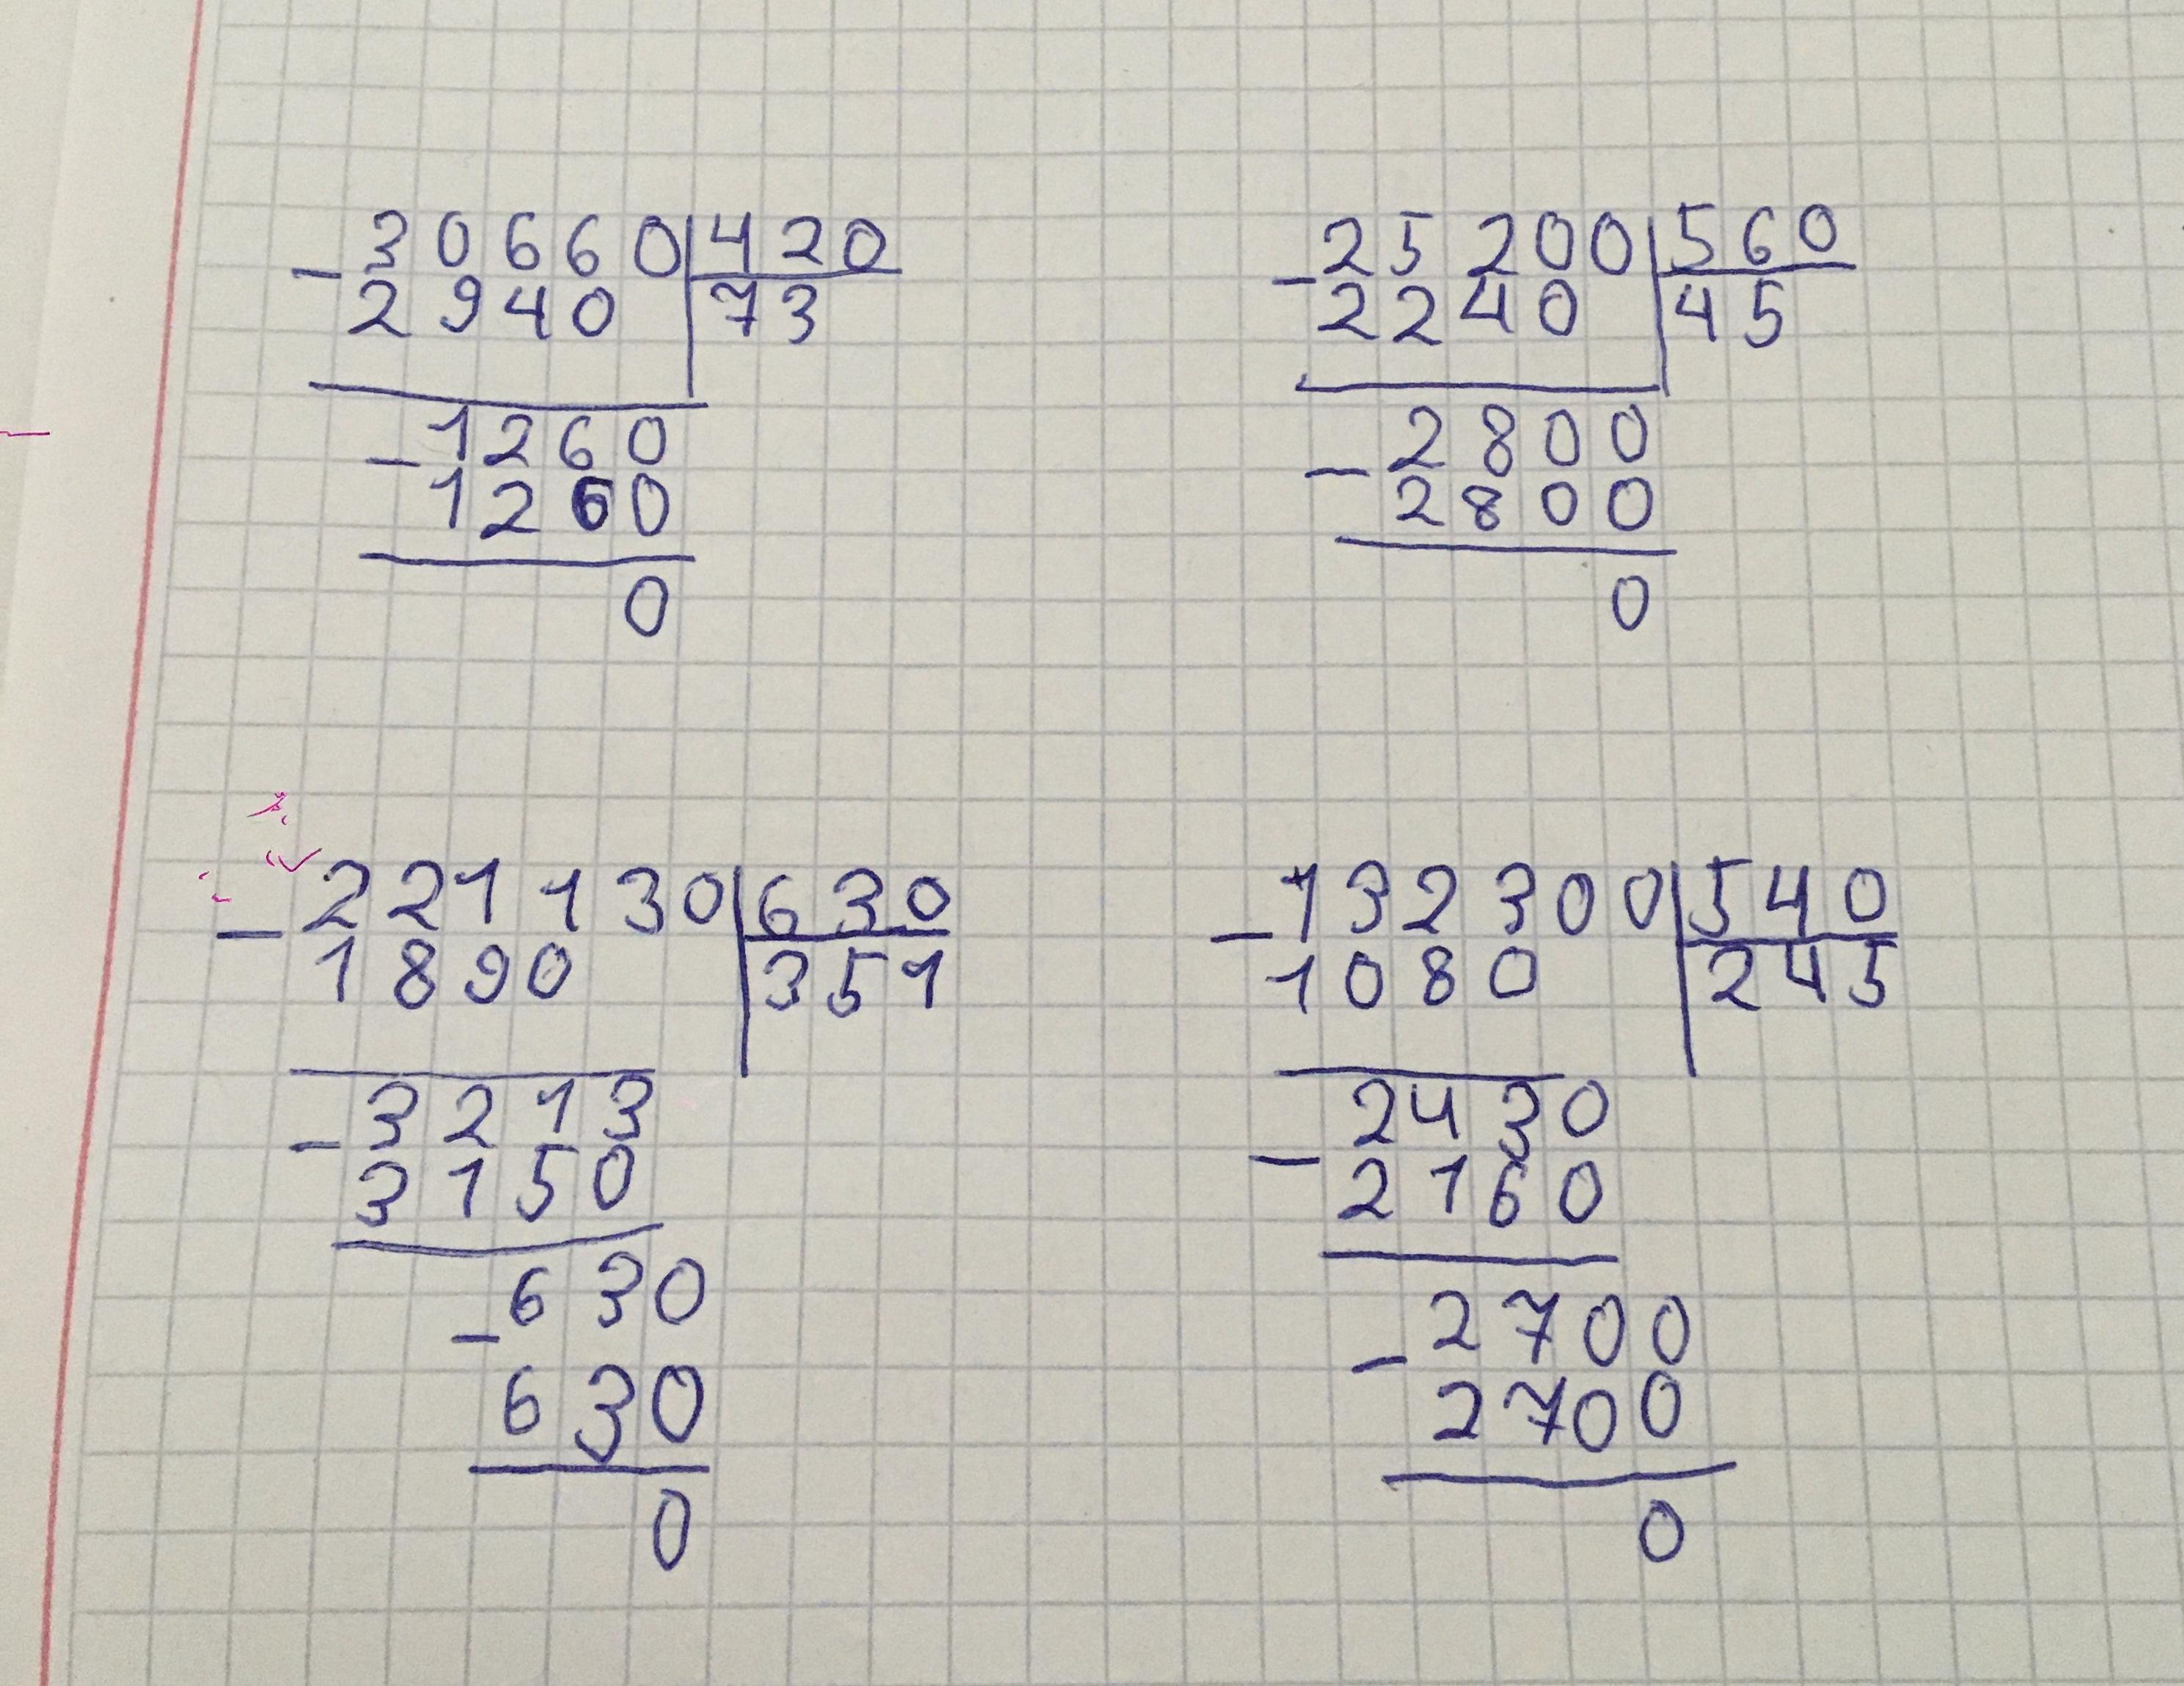 - 30660 | 420
2940 | 73
- 1260
1260
0
- 25200 | 560
2240 | 45
- 2800
2800
0
- 221130 | 630
1890 | 351
- 3213
3150
- 630
630
0
- 132300 | 540
1080 | 245
- 2430
2160
- 2700
2700
0